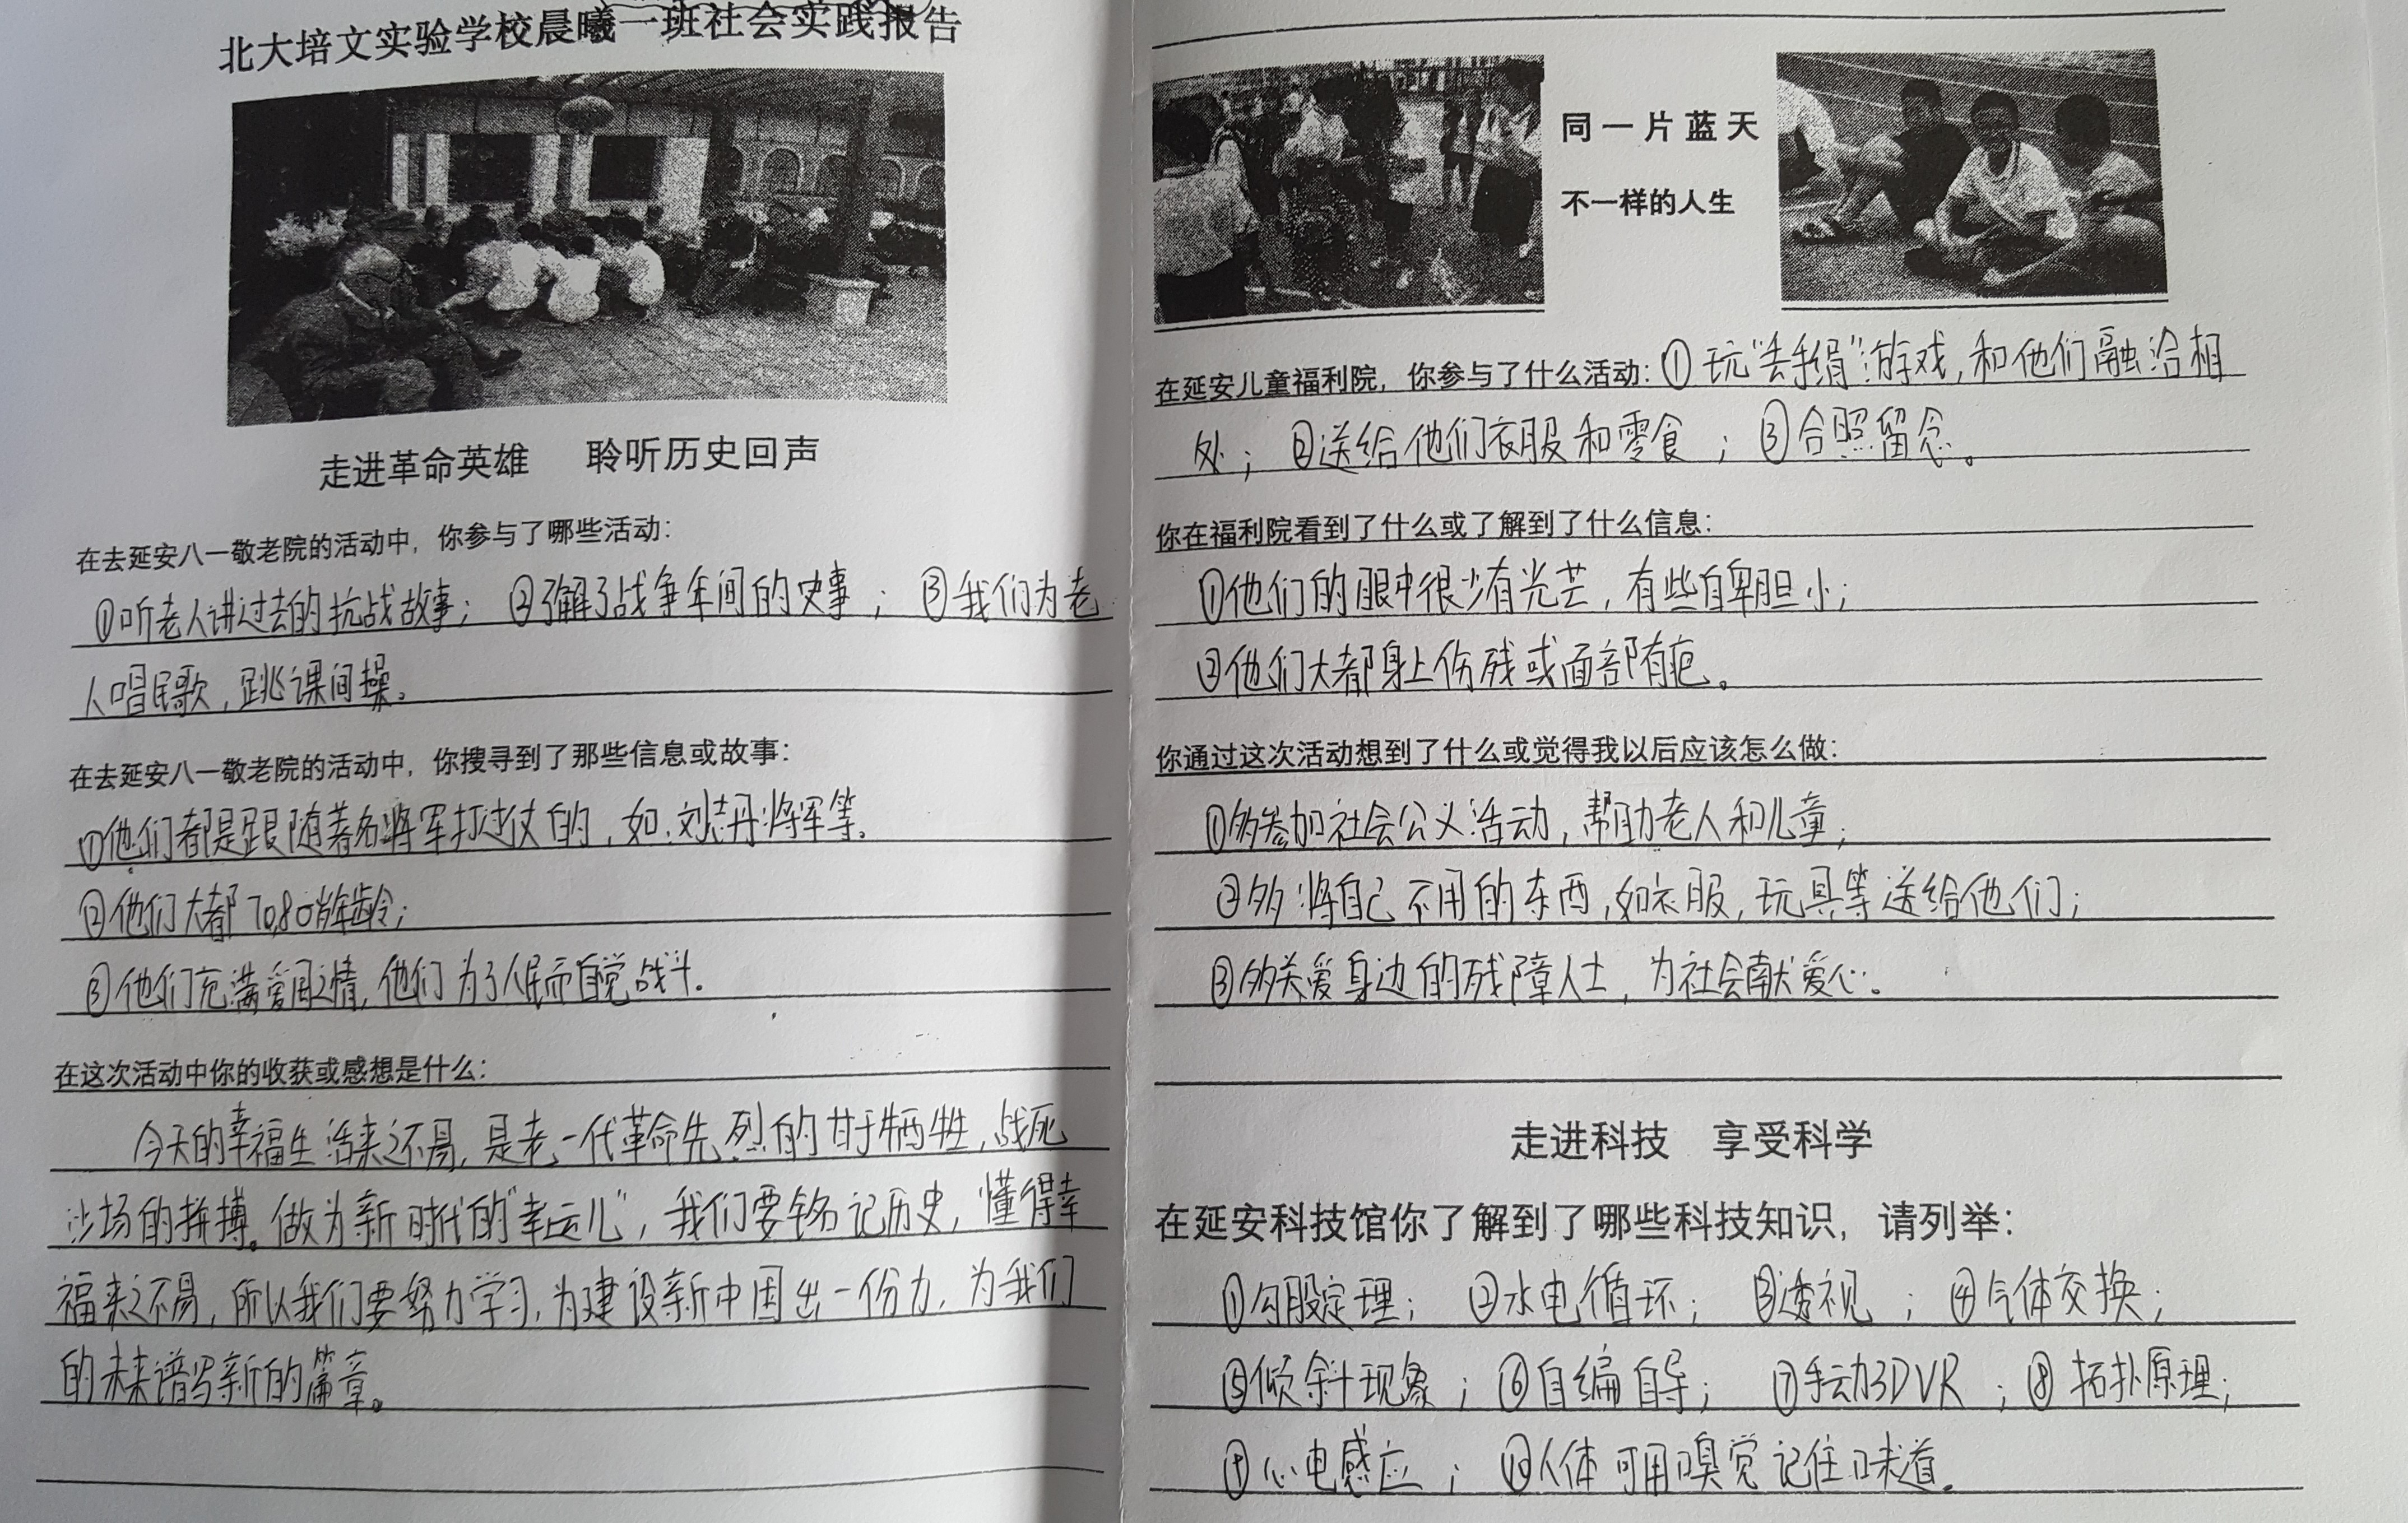 北大培文实验学校晨曦一班社会实践报告
走进革命英雄 聆听历史回声
在去延安八一敬老院的活动中，你参与了哪些活动：
①听老人讲过去的抗战故事；②了解了战争年间的史事；③我们为老
人唱民歌，跳课间操。
在去延安八一敬老院的活动中，你搜寻到了那些信息或故事：
①他们都是跟随著名将军打过仗的，如：刘志丹将军等。
②他们大都70,80岁年龄；
③他们充满爱国之情，他们为了人民而自觉战斗.
在这次活动中你的收获或感想是什么：
今天的幸福生活来之不易，是老一代革命先烈的甘于牺牲，战死
沙场的拼搏。做为新时代的“幸运儿”，我们要铭记历史，懂得幸
福来之不易，所以我们要努力学习，为建设新中国出一份力，为我们
的未来谱写新的篇章。
同一片蓝天
不一样的人生
在延安儿童福利院，你参与了什么活动：①玩“丢手绢”游戏，和他们融洽相
处；②送给他们衣服和零食；③合照留念。
你在福利院看到了什么或了解到了什么信息：
①他们的眼中很少有光芒，有些自卑胆小；
②他们大都身上伤残或面部有疤。
你通过这次活动想到了什么或觉得我以后应该怎么做：
①多参加社会公义活动，帮助老人和儿童；
②多将自己不用的东西，如衣服，玩具等送给他们；
③多关爱身边的残障人士，为社会献爱心。
走进科技 享受科学
在延安科技馆你了解到了哪些科技知识，请列举：
①勾股定理；②水电循环；③透视；④气体交换；
⑤倾斜现象；⑥自编自导；⑦手动3DVR；⑧拓扑原理；
⑨心电感应；⑩人体可用嗅觉记住味道。